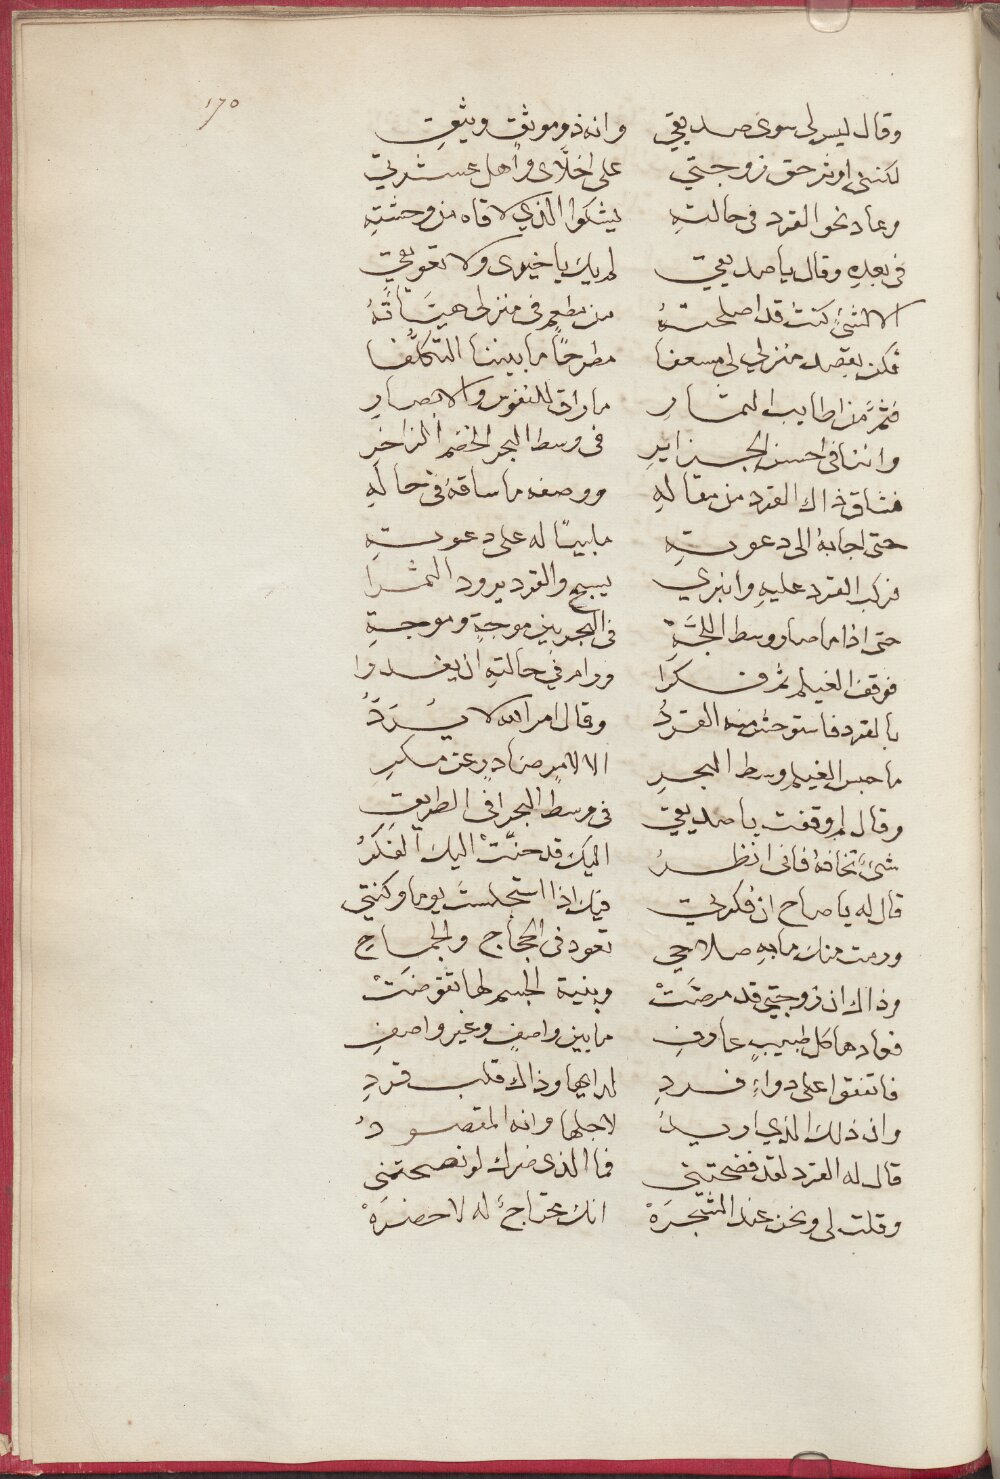 ١٧٥
وقال ليس لى سوى صديقي وانه ذو موثق وثيق
لكننى اوثر حق زوجتي على اخلّاى واهل عشرتي
وعاد نحو القرد فى حالته يشكوا الذي لاقاه من وحشته
فى بعده وقال يا صديقي لم يك ياخيرى ولا تعويقي
الا لشئ كنت قد اصلحته من مطعم فى منزلى هيّأته
فكن بقصد منزلي لى مسعفا مطرحًا ما بيننا التكلّفا
فثمّ من اطايب الثمار ما راق للنفوس والابصار
واننا فى احسن الجزاير فى وسط البحر الخضم الزاخر
فشاق ذاك القرد من مقاله ووصفه ما ساقه فى حاله
حتى اجابه الى دعوته مابيًا له على دعوته
فركب القرد عليه وانبري يسبح والقرد يرود الثمرا
حتى اذا ما صار وسط اللجّة فى البحر بين موجةٍ وموجة
فوقف الغيلم ثم فكرا ورام في حالته ان يغدرا
بالقرد فاستوحش منه القردُ وقال امر الله لا يُردّ
ما حبس الغيلم وسط البحر الا لامرٍ صادرٍ عن مكر
وقال لم وقفت يا صديقي فى وسط البحر افى الطريق
شئٌ تخافه فانى انظرُ اليك قد حنّت اليك الفكرُ
قال له يا صاح ان فكرتي فيك اذا استجلست يوما وكنتي
ورمت منك ما به صلاحي تعود فى الحجاج والجماح
وذاك ان زوجتي قد مرضتْ وبنية الجسم لها تقوضتْ
فعادها كل طبيبٍ عارف ما بين واصفٍ وغير واصف
فاتفقوا على دواءٍ فرد لدايها وذاك قلب قرد
وان ذلك الذي اريدُ لاجلها وانه المقصودُ
قال له القرد لقد فضحتني فما الذى ضرك لو نصحتنى
وقلت لى ونحن عند الشجرَهْ انك محتاجٌ له لاحضرَهْ